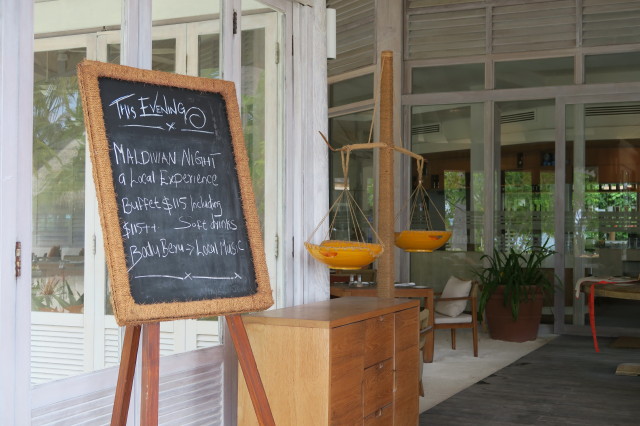 This Evening
Maldivian Night
a Local Experience
Buffet $115 Including
$115++ Soft drinks
Bodu Beru => Local Music